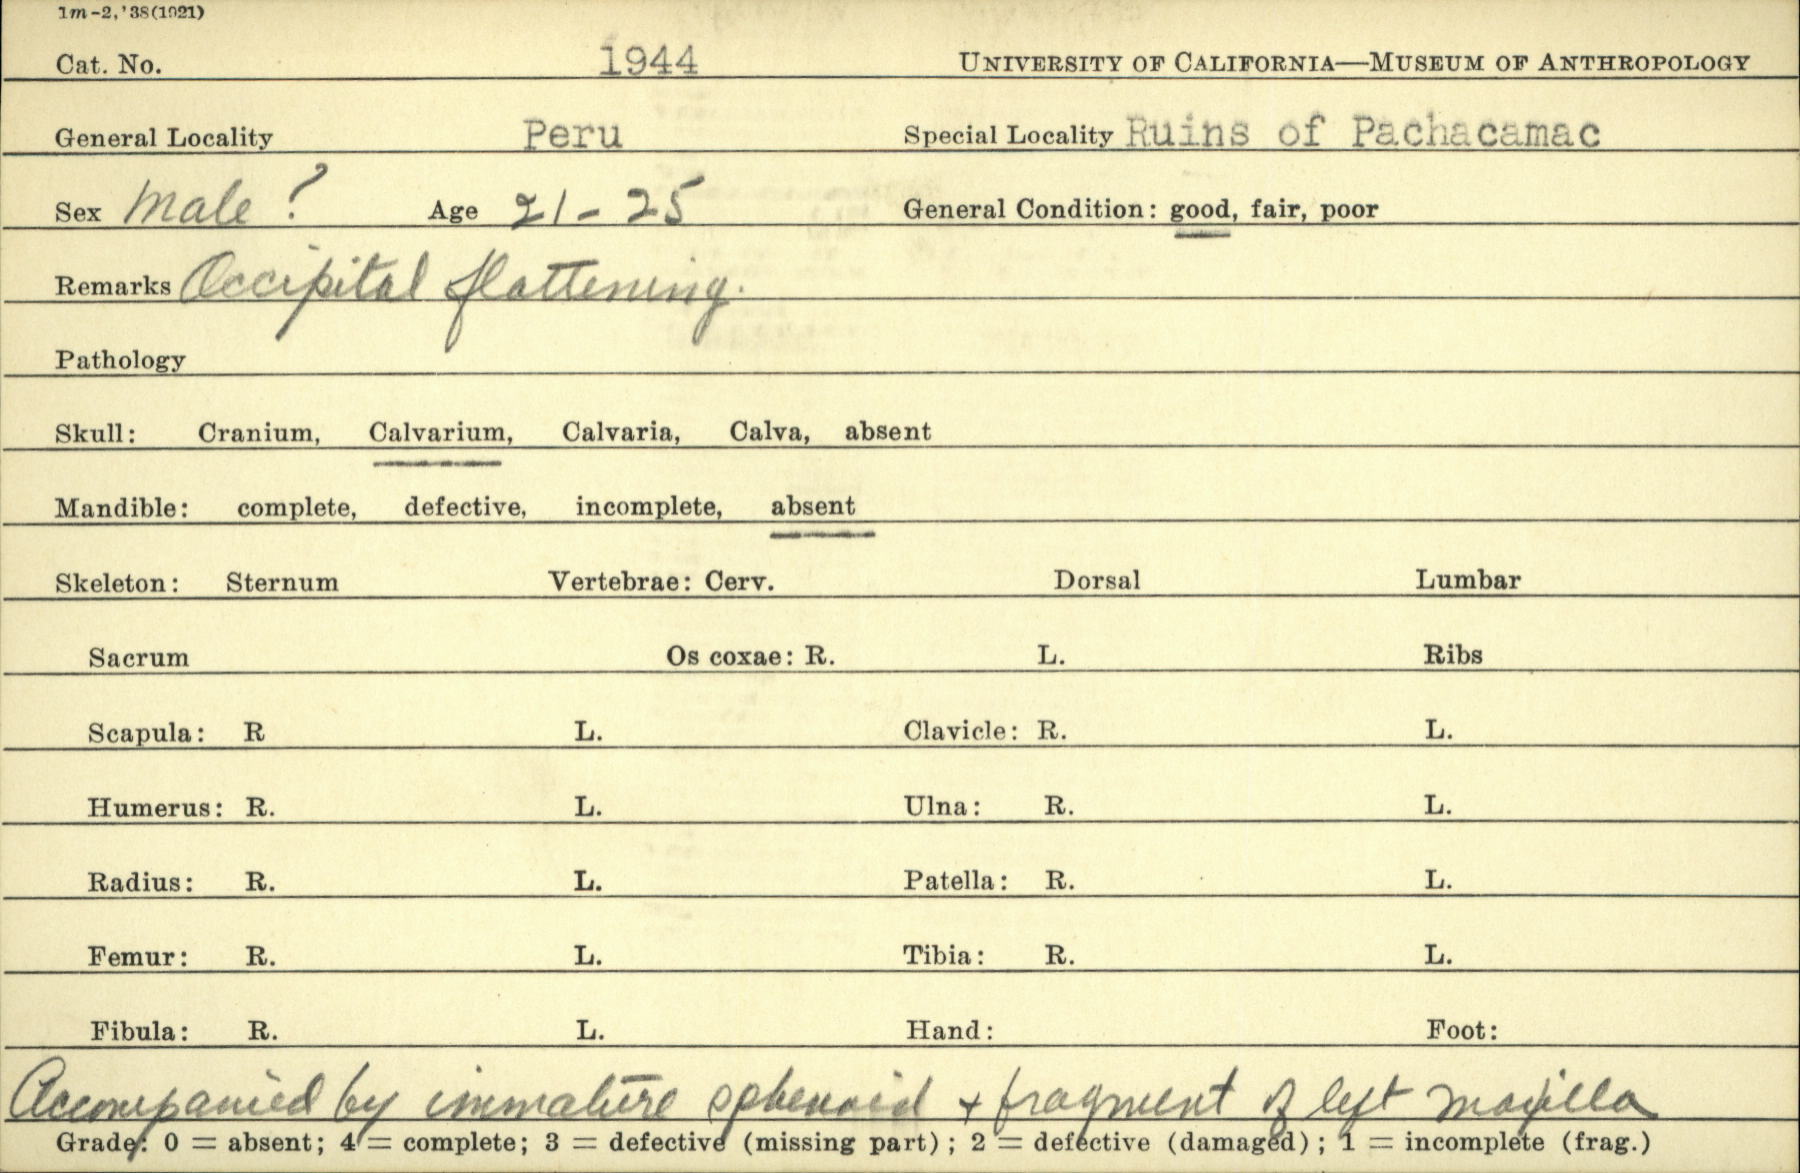 1m-2,'38(1921)
Cat. No. 1944 UNIVERSITY OF CALIFORNIA—MUSEUM OF ANTHROPOLOGY
General Locality Peru Special Locality Ruins of Pachacamac
Sex Male ? Age 21-25 General Condition: good, fair, poor
Remarks Occipital flattening.
Pathology
Skull: Cranium, Calvarium, Calvaria, Calva, absent
Mandible: complete, defective, incomplete, absent
Skeleton: Sternum Vertebrae: Cerv. Dorsal Lumbar
Sacrum Os coxae: R. L. Ribs
Scapula: R L. Clavicle: R. L.
Humerus: R. L. Ulna: R. L.
Radius: R. L. Patella: R. L.
Femur: R. L. Tibia: R. L.
Fibula: R. L. Hand: Foot:
Accompanied by immature sphenoid + fragment of left maxilla
Grade: 0 = absent; 4 = complete; 3 = defective (missing part); 2 = defective (damaged); 1 = incomplete (frag.)